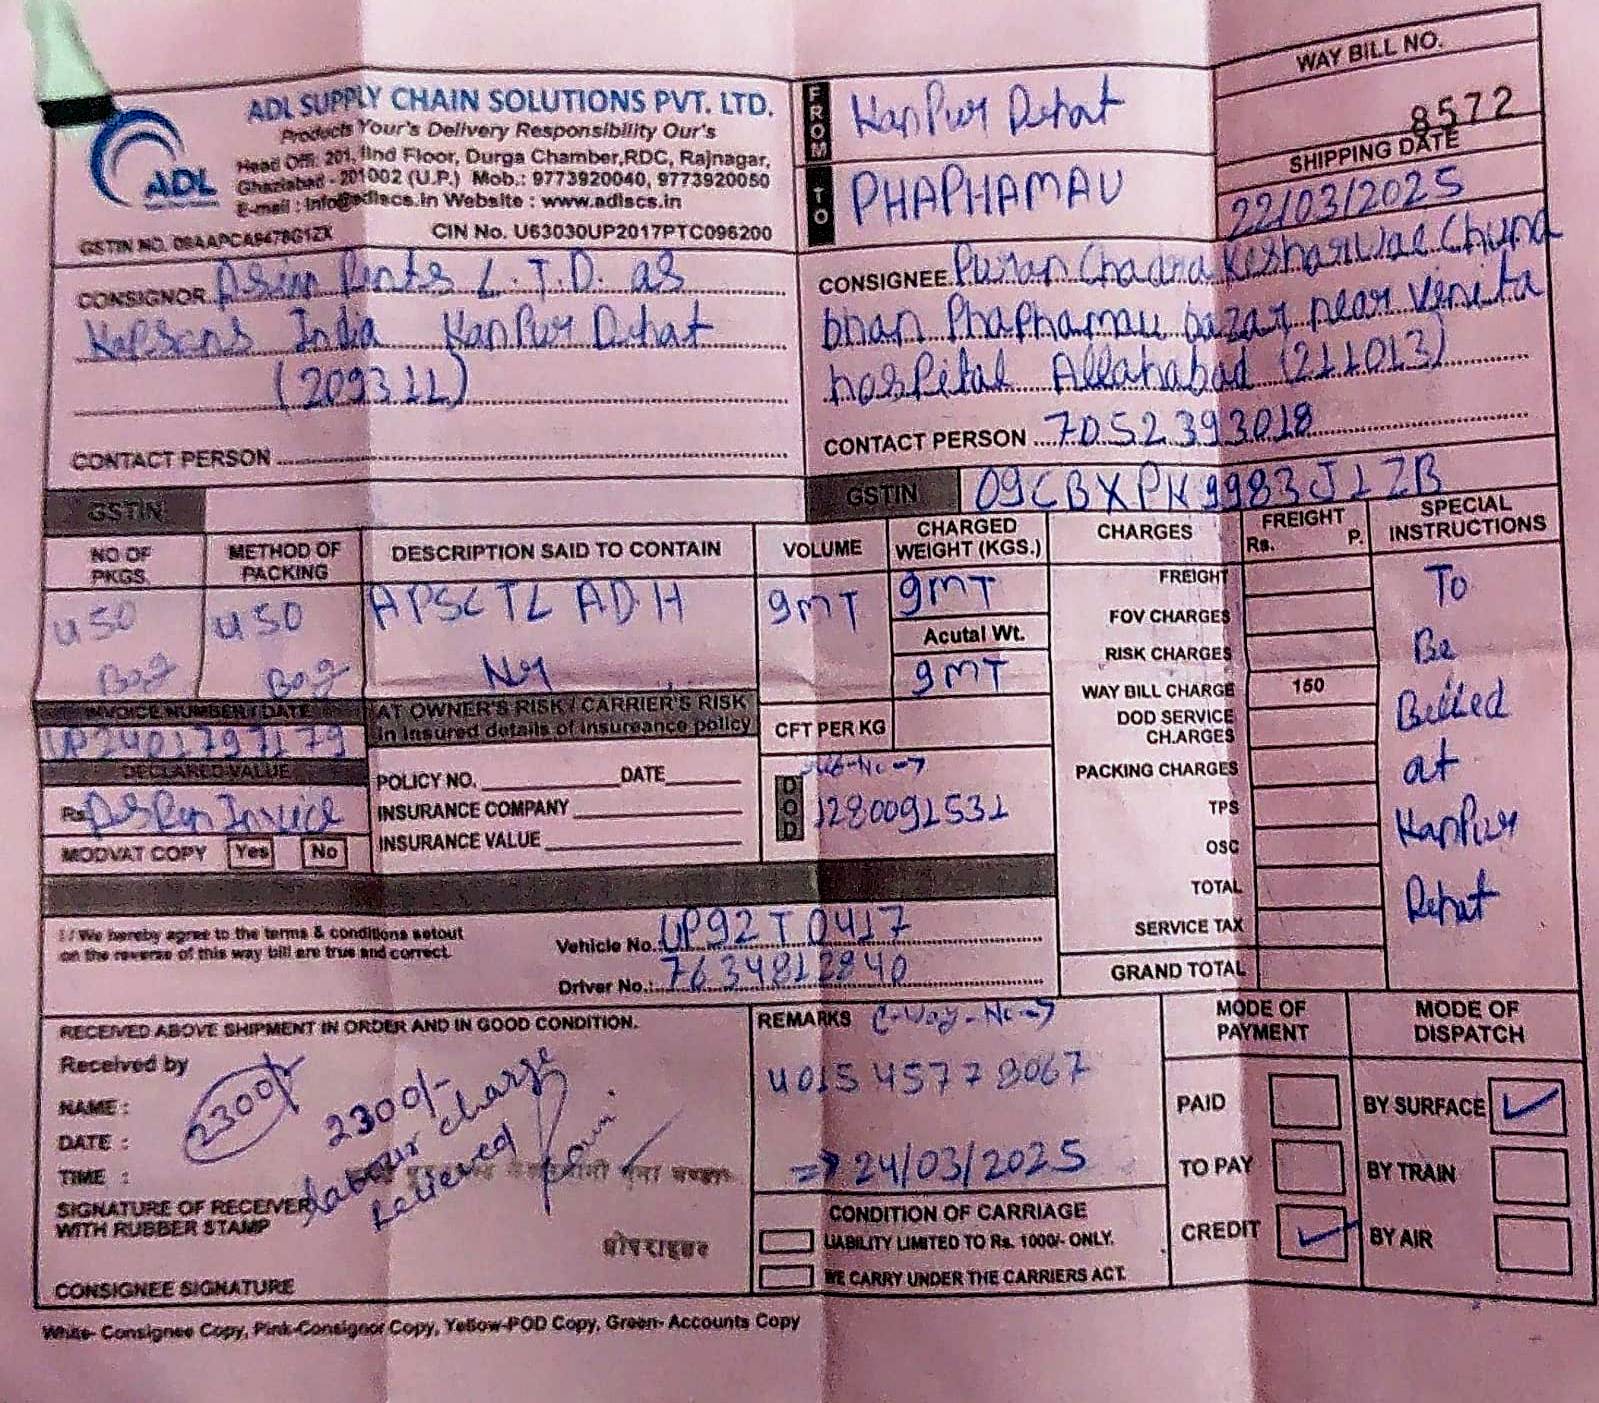 WAY BILL NO.
8572
SHIPPING DATE
22/03/2025
ADL
ADL SUPPLY CHAIN SOLUTIONS PVT. LTD.
Products Your's Delivery Responsibility Our's
Head Off: 201, IInd Floor, Durga Chamber,RDC, Rajnagar,
Ghaziabad - 201002 (U.P.) Mob.: 9773920040, 9773920050
E-mail : Info@adlscs.in Website : www.adlscs.in
GSTIN NO. 09AAPCA9478G1ZX CIN No. U63030UP2017PTC096200
FROM Kanpur Dehat
TO PHAPHAMAU
CONSIGNOR Asian Pints L.T.D. as
Kapsons India Kanpur Dehat
(209311)
CONTACT PERSON
GSTIN
CONSIGNEE Puran Chadra Kesharwae Chuna
bhan Phaphamau bazar near Venita
hospital Allahabad (211013)
CONTACT PERSON 7052393018
GSTIN 09CBXPK9983J1ZB
NO OF PKGS. METHOD OF PACKING DESCRIPTION SAID TO CONTAIN VOLUME CHARGED WEIGHT (KGS.)
450 Bag 450 Bag APSCTL ADH 9MT 9MT
Acutal Wt.
9MT
INVOICE NUMBER / DATE
UP2401797179
AT OWNER'S RISK / CARRIER'S RISK
in insured details of insureance policy
CFT PER KG
DECLARED VALUE
Rs. As Per Invoice
MODVAT COPY Yes No
POLICY NO. DATE
INSURANCE COMPANY
INSURANCE VALUE
DOD
1280091531
CHARGES FREIGHT Rs. P. SPECIAL INSTRUCTIONS
FREIGHT
FOV CHARGES
RISK CHARGES
WAY BILL CHARGE 150
DOD SERVICE CH.ARGES
PACKING CHARGES
TPS
OSC
TOTAL
SERVICE TAX
GRAND TOTAL
To
Be
Billed
at
Kanpur
Dehat
I / We hereby agree to the terms & conditions setout
on the reverse of this way bill are true and correct.
Vehicle No.: UP92T0417
Driver No.: 7634812940
RECEIVED ABOVE SHIPMENT IN ORDER AND IN GOOD CONDITION.
Received by
NAME :
DATE :
TIME :
SIGNATURE OF RECEIVER
WITH RUBBER STAMP
CONSIGNEE SIGNATURE
2300/-
2300/-
Labour charge
Relieved
प्रोपराइटर
REMARKS E-Way-No-
401545778067
=> 24/03/2025
CONDITION OF CARRIAGE
LIABILITY LIMITED TO Rs. 1000/- ONLY.
WE CARRY UNDER THE CARRIERS ACT.
MODE OF PAYMENT
PAID
TO PAY
CREDIT
MODE OF DISPATCH
BY SURFACE
BY TRAIN
BY AIR
White- Consignee Copy, Pink-Consignor Copy, Yellow-POD Copy, Green- Accounts Copy